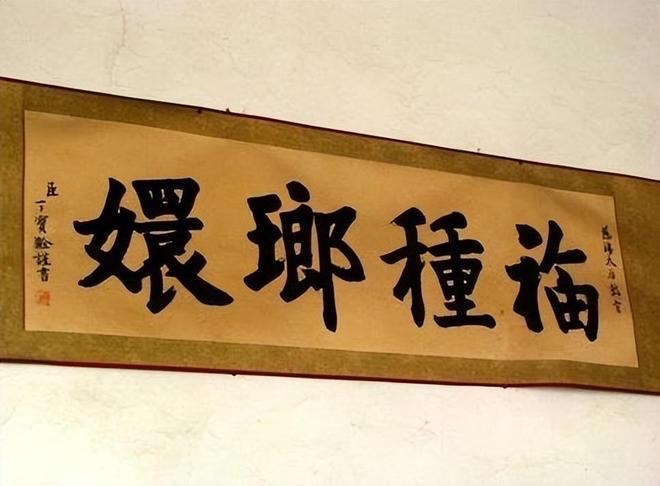 慈禧太后
福種瑯嬛
臣丁寶謹書